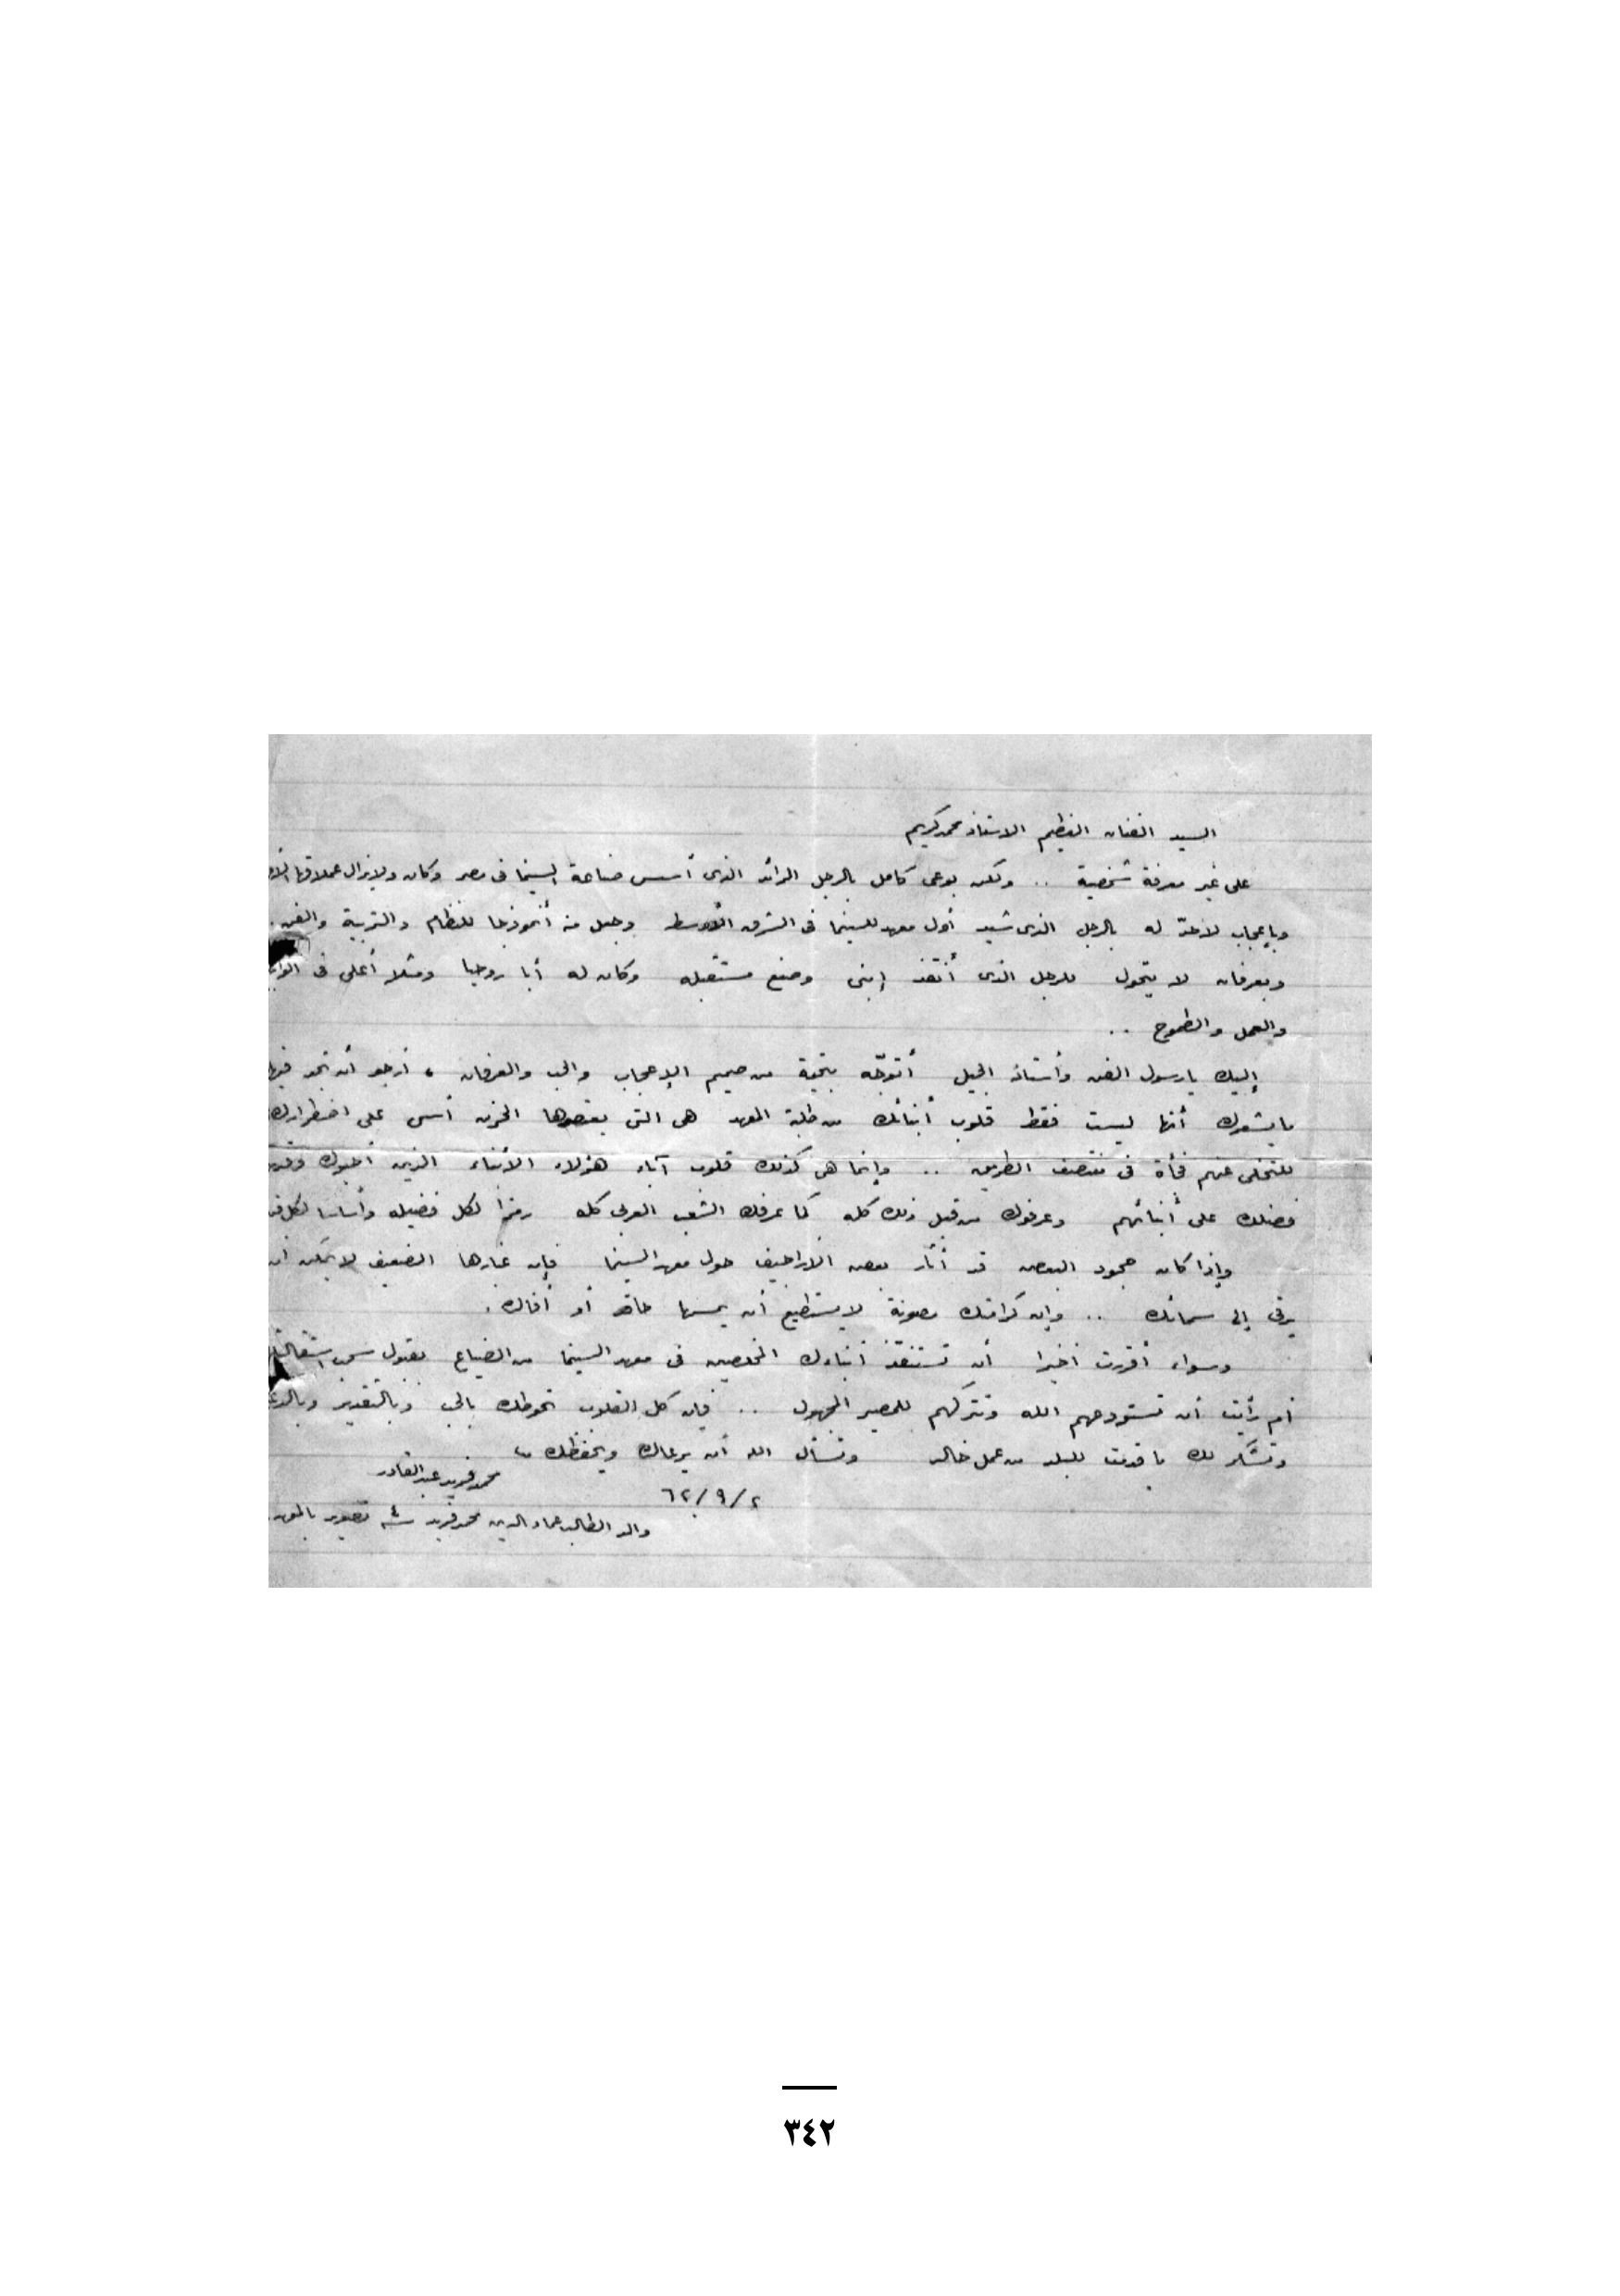 السيد الفنان العظيم الاستاذ محمد كريم
على غير معرفة شخصية .. ولكن بوعى كامل بالرجل الرائد الذى أسس صناعة السينما فى مصر وكان ولايزال عملاقها
وبإعجاب لاحدّ له بالرجل الذى شيد أول معهد للسينما فى الشرق الأوسط وجعل منه أنموذجا للنظام والتربية والفن .
وبعرفان لا يتحول للرجل الذى أنقذ إبنى وصنع مستقبله وكان له أبا روحيا ومثلا أعلى فى
والعمل والطموح ..
إليك يارسول الفن وأستاذ الجيل أتوجّه بتحية من صميم الإعجاب والحب والعرفان ، أرجو أن تجد فيها
مايشعرك أنها ليست فقط قلوب أبنائك من طلبة المعهد هى التى يعتصرها الحزن أسى على اضطرارك
للتخلى عنهم فجأة فى منتصف الطريق .. وإنما هى كذلك قلوب آباء هؤلاء الأبناء الذين أحبوك
فضلك على أبنائهم وعرفوك من قبل ذلك كله كما عرفك الشعب العربى كله رمزا لكل فضيله وأساسا لكل
وإذا كان جحود البعض قد أثار بعض الأراجيف حول معهد السينما فإن غبارها الضعيف لايمكن أن
يرقى إلى سمائك .. وإن كرامتك مصونة لايستطيع أن يمسها حاقد أو أفاك .
وسواء أقررت أخيرا أن تستنقذ أبناءك المخلصين فى معهد السينما من الضياع بقبول سحب استقالتك
أم رأيت أن تستودعهم الله وتتركهم للمصير المجهول .. فإن كل القلوب تحوطك بالحب وبالتقدير
وتشكر لك ما قدمت للبلد من عمل خالد ونسأل الله أن يرعاك ويحفظك
محمد فريد عبد القادر
٦٢/٩/٢
والد الطالب عماد الدين محمد فريد تصوير بالمعهد
٣٤٢